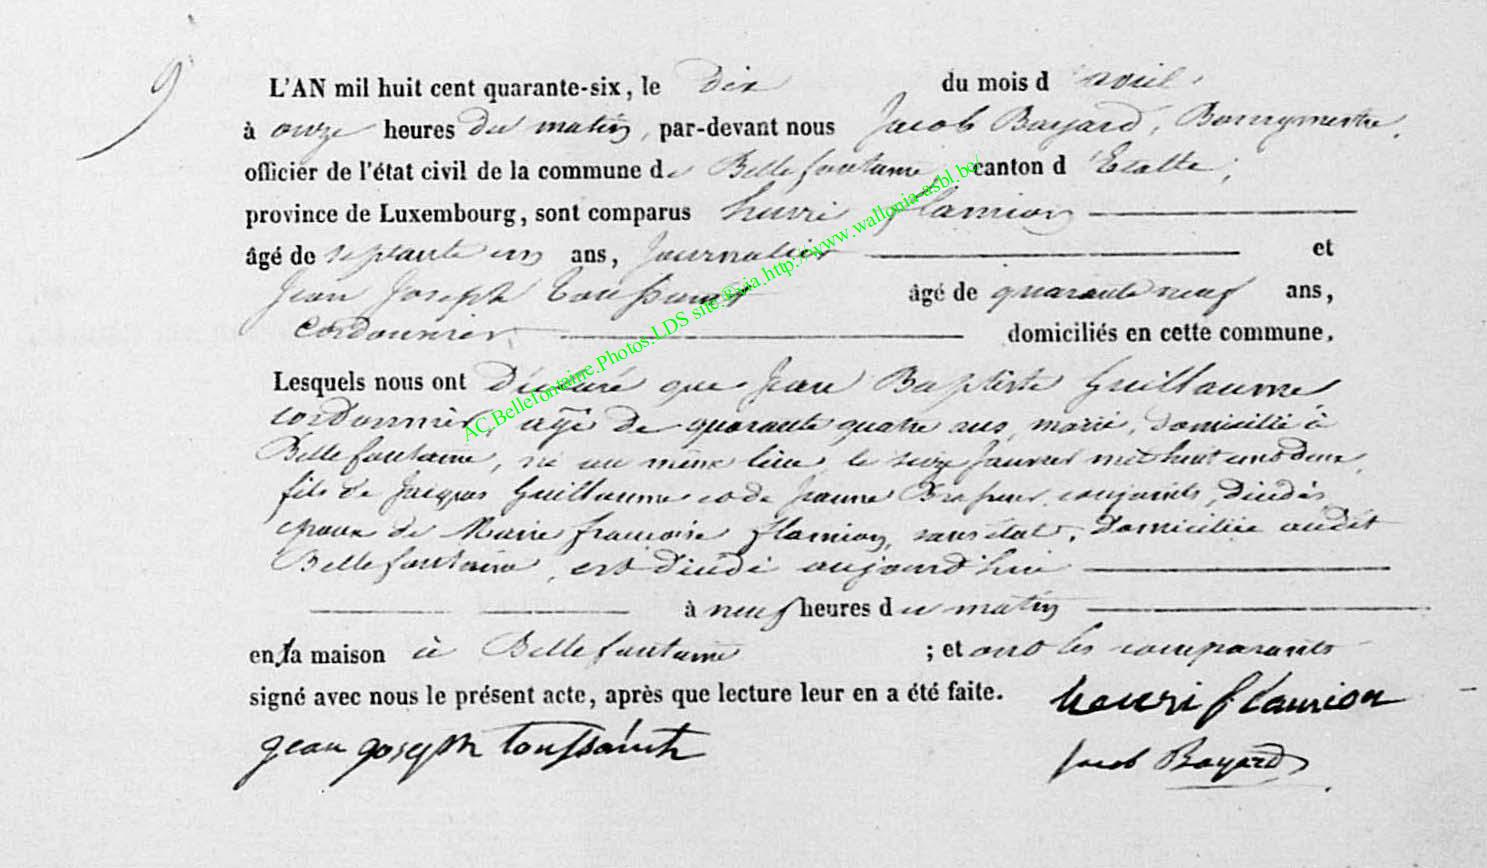 9
L'AN mil huit cent quarante-six, le dix du mois d'avril,
à onze heures du matin, par-devant nous Jacob Bayard, Bourgmestre,
officier de l'état civil de la commune de Bellefontaine, canton d'Etalle,
province de Luxembourg, sont comparus henri flamion
âgé de septante un ans, journalier et
Jean Joseph Toussaint âgé de quarante neuf ans,
cordonnier, domiciliés en cette commune.
Lesquels nous ont déclaré que Jean Baptiste Guillaume,
cordonnier, agé de quarante quatre ans, marié, domicilié à
Bellefontaine, né au même lieu, le seize janvier mil huit cent deux,
fils de Jacques Guillaume et de Jeanne conjoints, décédés
epoux de Marie françoise flamion, sans état, domiciliée audit
Bellefontaine, est décédé aujourd'hui
à neuf heures du matin
en sa maison à Bellefontaine ; et ont les comparants
signé avec nous le présent acte, après que lecture leur en a été faite.
henri flamion
jean joseph toussaint
Jacob Bayard
AC.Bellefontaine.Photos.LDS site.©via.http://www.wallonia-asbl.be/